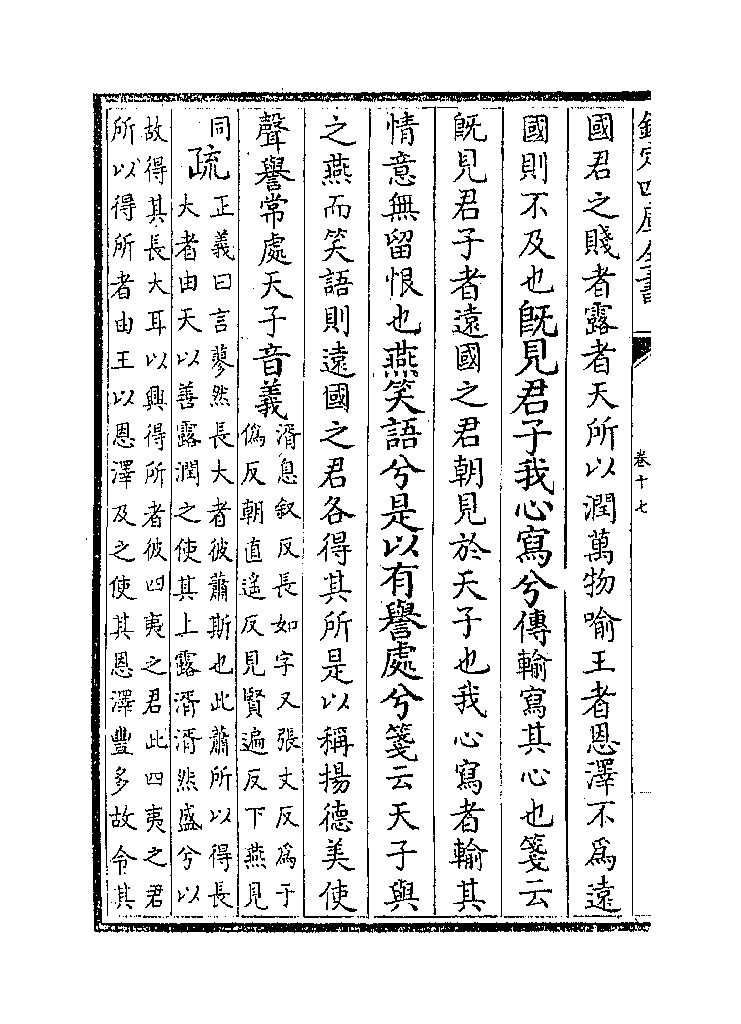 欽定四庫全書
卷十七
國君之賤者露者天所以潤萬物喻王者恩澤不爲遠
國則不及也既見君子我心寫兮傳輸寫其心也箋云
既見君子者遠國之君朝見於天子也我心寫者輸其
情意無留恨也燕笑語兮是以有譽處兮箋云天子與
之燕而笑語則遠國之君各得其所是以稱揚德美使
聲譽常處天子音義
湑息叙反長如字又張丈反爲于
偽反朝直遥反見賢遍反下燕見
同
疏
正義曰言蓼然長大者彼蕭斯也此蕭所以得長
大者由天以善露潤之使其上露湑湑然盛兮以
故得其長大耳以興得所者彼四夷之君此四夷之君
所以得所者由王以恩澤及之使其恩澤豐多故令其